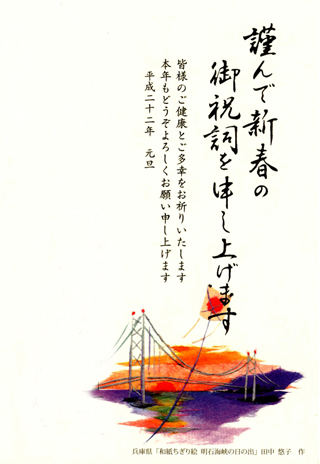 謹んで新春の
御祝詞を申し上げます
皆様のご健康とご多幸をお祈りいたします
本年もどうぞよろしくお願い申し上げます
平成二十二年 元旦
兵庫県「和紙ちぎり絵 明石海峡の日の出」田中 悠子 作